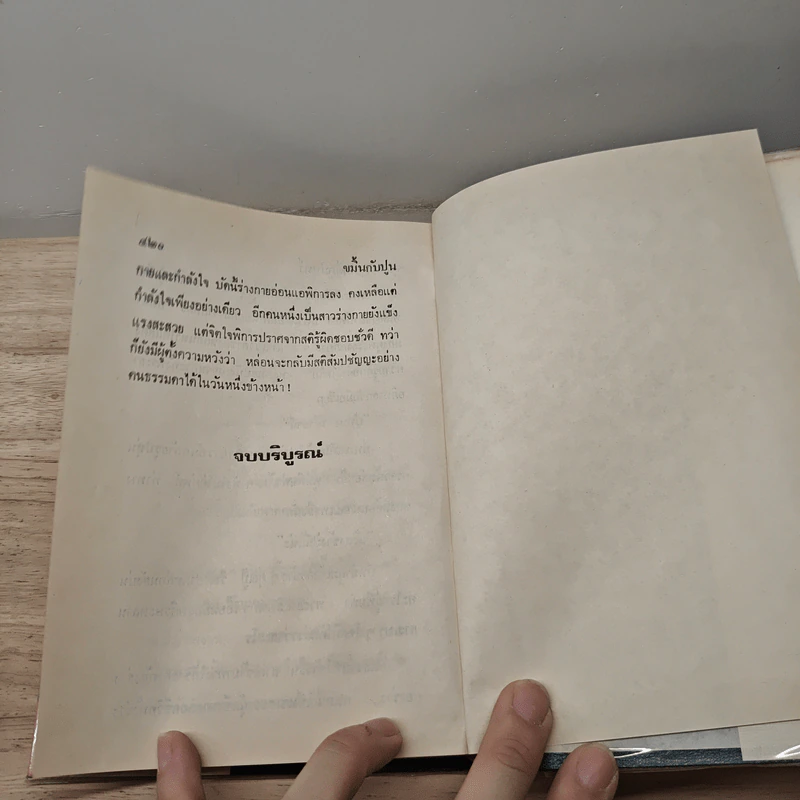 ๔๒๑
ขมิ้นกับปูน
กายและกำลังใจ บัดนี้ร่างกายอ่อนแอพิการลง คงเหลือแต่
กำลังใจเพียงอย่างเดียว อีกคนหนึ่งเป็นสาวร่างกายยังแข็ง
แรงสะสวย แต่จิตใจพิการปราศจากสติรู้ผิดชอบชั่วดี ทว่า
ก็ยังมีผู้ตั้งความหวังว่า หล่อนจะกลับมีสติสัมปชัญญะอย่าง
คนธรรมดาได้ในวันหนึ่งข้างหน้า !
จบบริบูรณ์